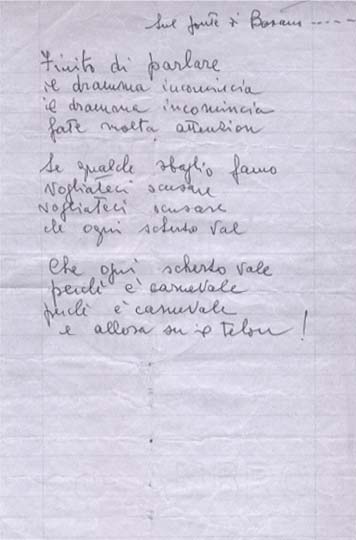 Sul ponte di Bassano -----
Finito di parlare
il dramma incomincia
il dramma incomincia
fate molta attenzion
Se qualche sbaglio famo
Vogliateci scusare
vogliateci scusare
ché ogni scherzo val
Che ogni scherzo vale
perché è carnevale
perché è carnevale
e allora su il telon!